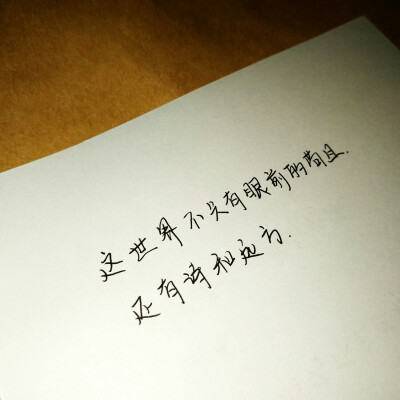 这世界不只有眼前的苟且.
还有诗和远方.